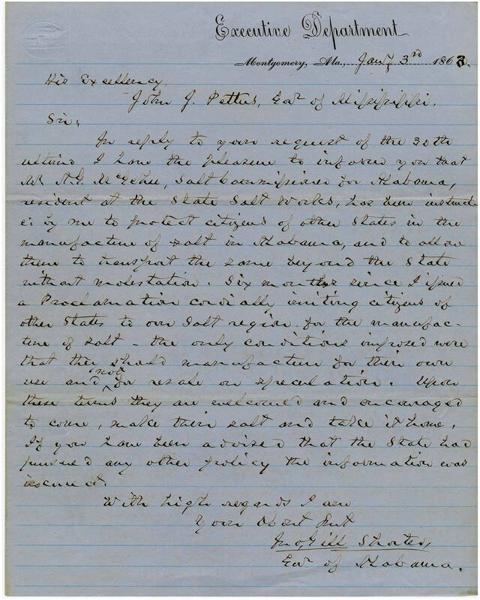 Executive Department
Montgomery, Ala., Jany 3rd 1863.
His Excellency,
John J. Pettus, Govr of Mississippi.
Sir,
In reply to your request of the 30th
ultimo I have the pleasure to inform you that
Mr A.G. McGehee, Salt Commissioner for Alabama,
resident at the State Salt Works, has been instruct-
ed by me to protect citizens of other States in the
manufacture of salt in Alabama, and to allow
them to transport the same beyond the State
without molestation. Six months since I issued
a Proclamation cordially inviting citizens of
other States to our Salt region for the manufac-
ture of salt - the only conditions imposed were
that they should manufacture for their own
use and not for resale on speculation. Upon
these terms they are welcomed and encouraged
to come, make their salt and take it home.
If you have been advised that the State had
pursued any other policy the information was
incorrect.
With high regards I am
Your Obedt Svt
Jno. Gill Shorter,
Govr of Alabama.